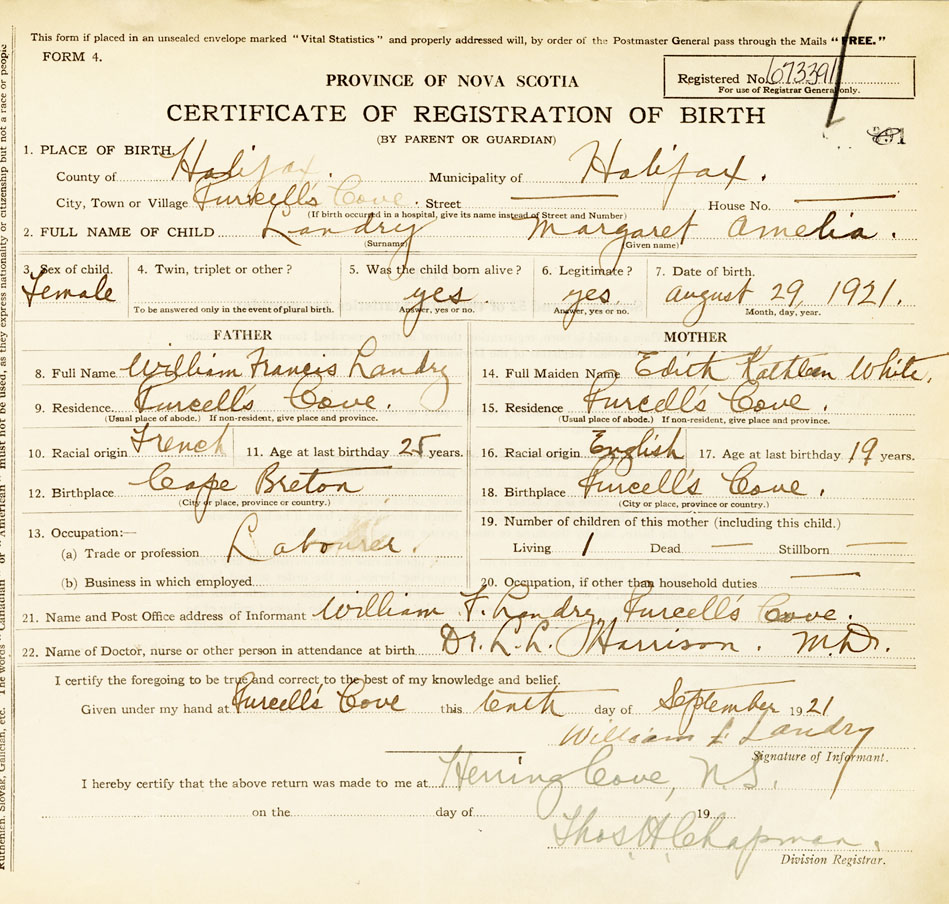 This form if placed in an unsealed envelope marked "Vital Statistics" and properly addressed will, by order of the Postmaster General pass through the Mails "FREE."
FORM 4.
Registered No. 673391
For use of Registrar General only.
PROVINCE OF NOVA SCOTIA
CERTIFICATE OF REGISTRATION OF BIRTH
(BY PARENT OR GUARDIAN)
1. PLACE OF BIRTH.
County of Halifax. Municipality of Halifax.
City, Town or Village Purcell's Cove. Street — House No. —
(If birth occurred in a hospital, give its name instead of Street and Number)
2. FULL NAME OF CHILD Landry Margaret Amelia.
(Surname) (Given name)
3. Sex of child. 4. Twin, triplet or other? 5. Was the child born alive? 6. Legitimate? 7. Date of birth.
Female yes. yes August 29, 1921.
To be answered only in the event of plural birth. Answer, yes or no. Answer, yes or no. Month, day, year.
FATHER MOTHER
8. Full Name William Francis Landry 14. Full Maiden Name Edith Kathleen White.
9. Residence Purcell's Cove. 15. Residence Purcell's Cove.
(Usual place of abode.) If non-resident, give place and province. (Usual place of abode.) If non-resident, give place and province.
10. Racial origin French 11. Age at last birthday 25 years. 16. Racial origin English 17. Age at last birthday 19 years.
12. Birthplace Cape Breton 18. Birthplace Purcell's Cove.
(City or place, province or country.) (City or place, province or country.)
13. Occupation:— 19. Number of children of this mother (including this child.)
(a) Trade or profession Labourer. Living 1 Dead — Stillborn —
(b) Business in which employed 20. Occupation, if other than household duties —
21. Name and Post Office address of Informant William F. Landry, Purcell's Cove.
22. Name of Doctor, nurse or other person in attendance at birth Dr. L. L. Harrison. M.D.
I certify the foregoing to be true and correct to the best of my knowledge and belief.
Given under my hand at Purcell's Cove this tenth day of September 1921
William F Landry
Signature of Informant.
I hereby certify that the above return was made to me at Herring Cove, N.S.
on the day of 19
Thos H Chapman.
Division Registrar.
Ruthenian, Slovak, Galician, etc. The words "Canadian" or "American" must not be used, as they express nationality or citizenship but not a race or people